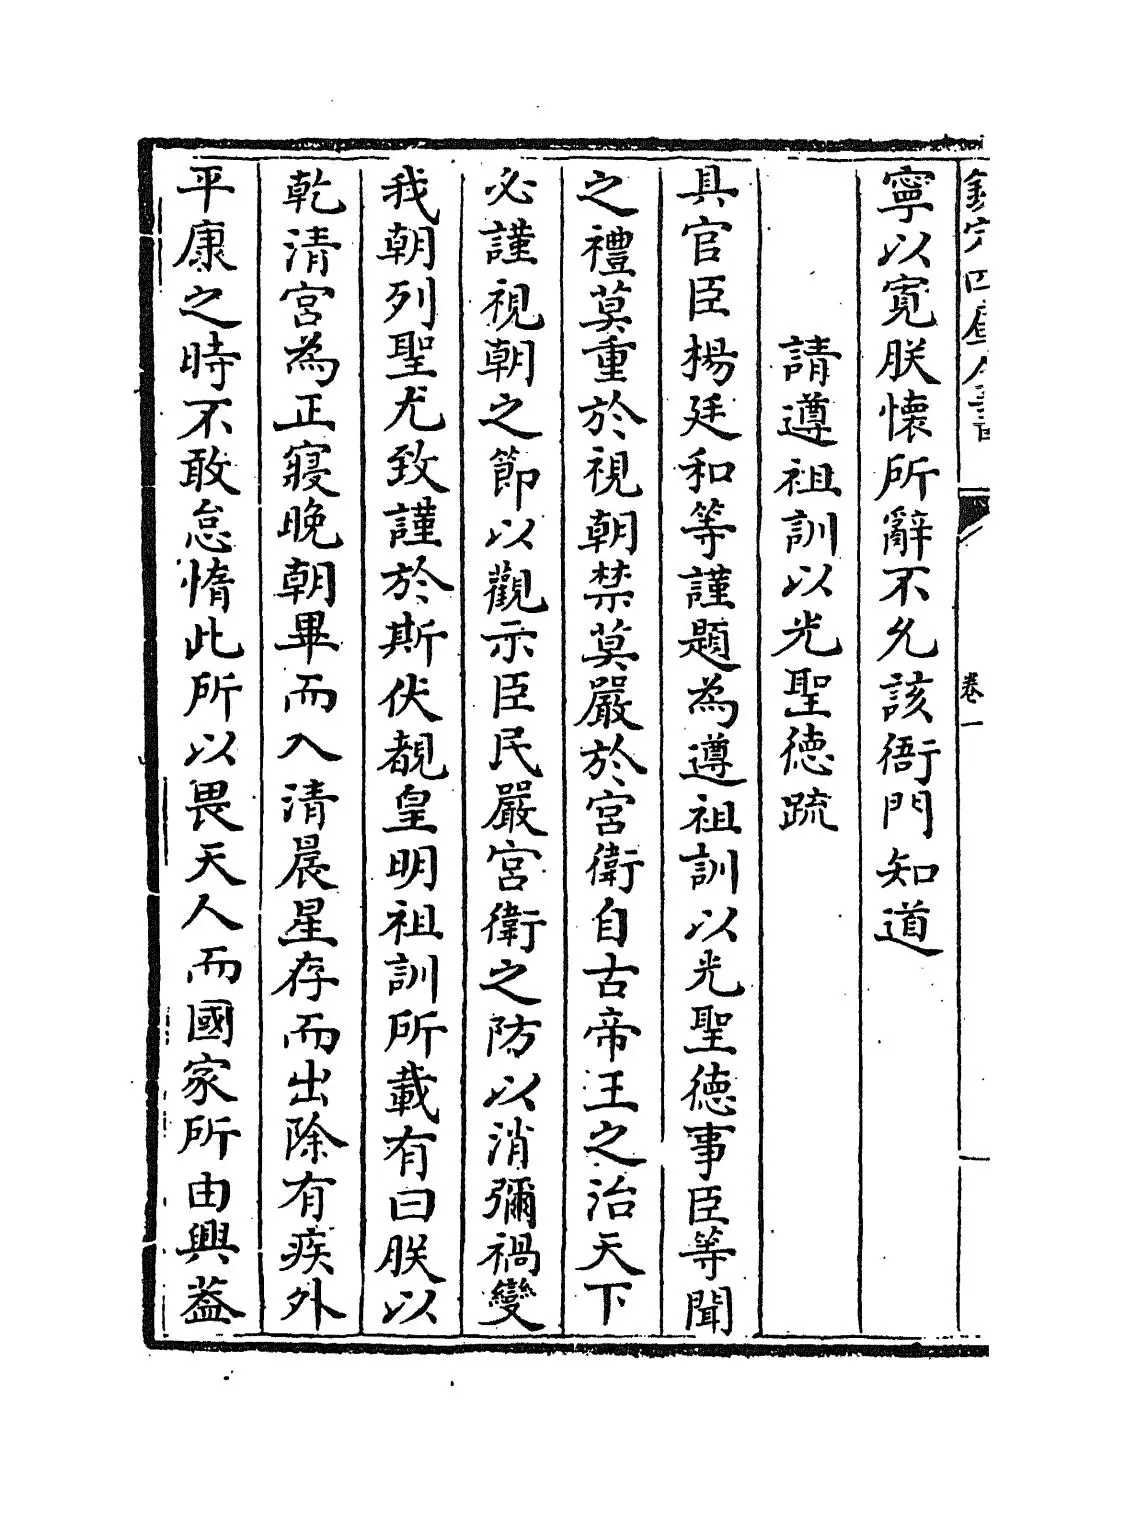 欽定四庫全書
卷一
寧以寛朕懷所辭不允該衙門知道
請遵祖訓以光聖德疏
具官臣楊廷和等謹題為遵祖訓以光聖德事臣等聞
之禮莫重於視朝禁莫嚴於宮衛自古帝王之治天下
必謹視朝之節以觀示臣民嚴宮衛之防以消彌禍變
我朝列聖尤致謹於斯伏覩皇明祖訓所載有曰朕以
乾清宮為正寢晚朝畢而入清晨星存而出除有疾外
平康之時不敢怠惰此所以畏天人而國家所由興葢